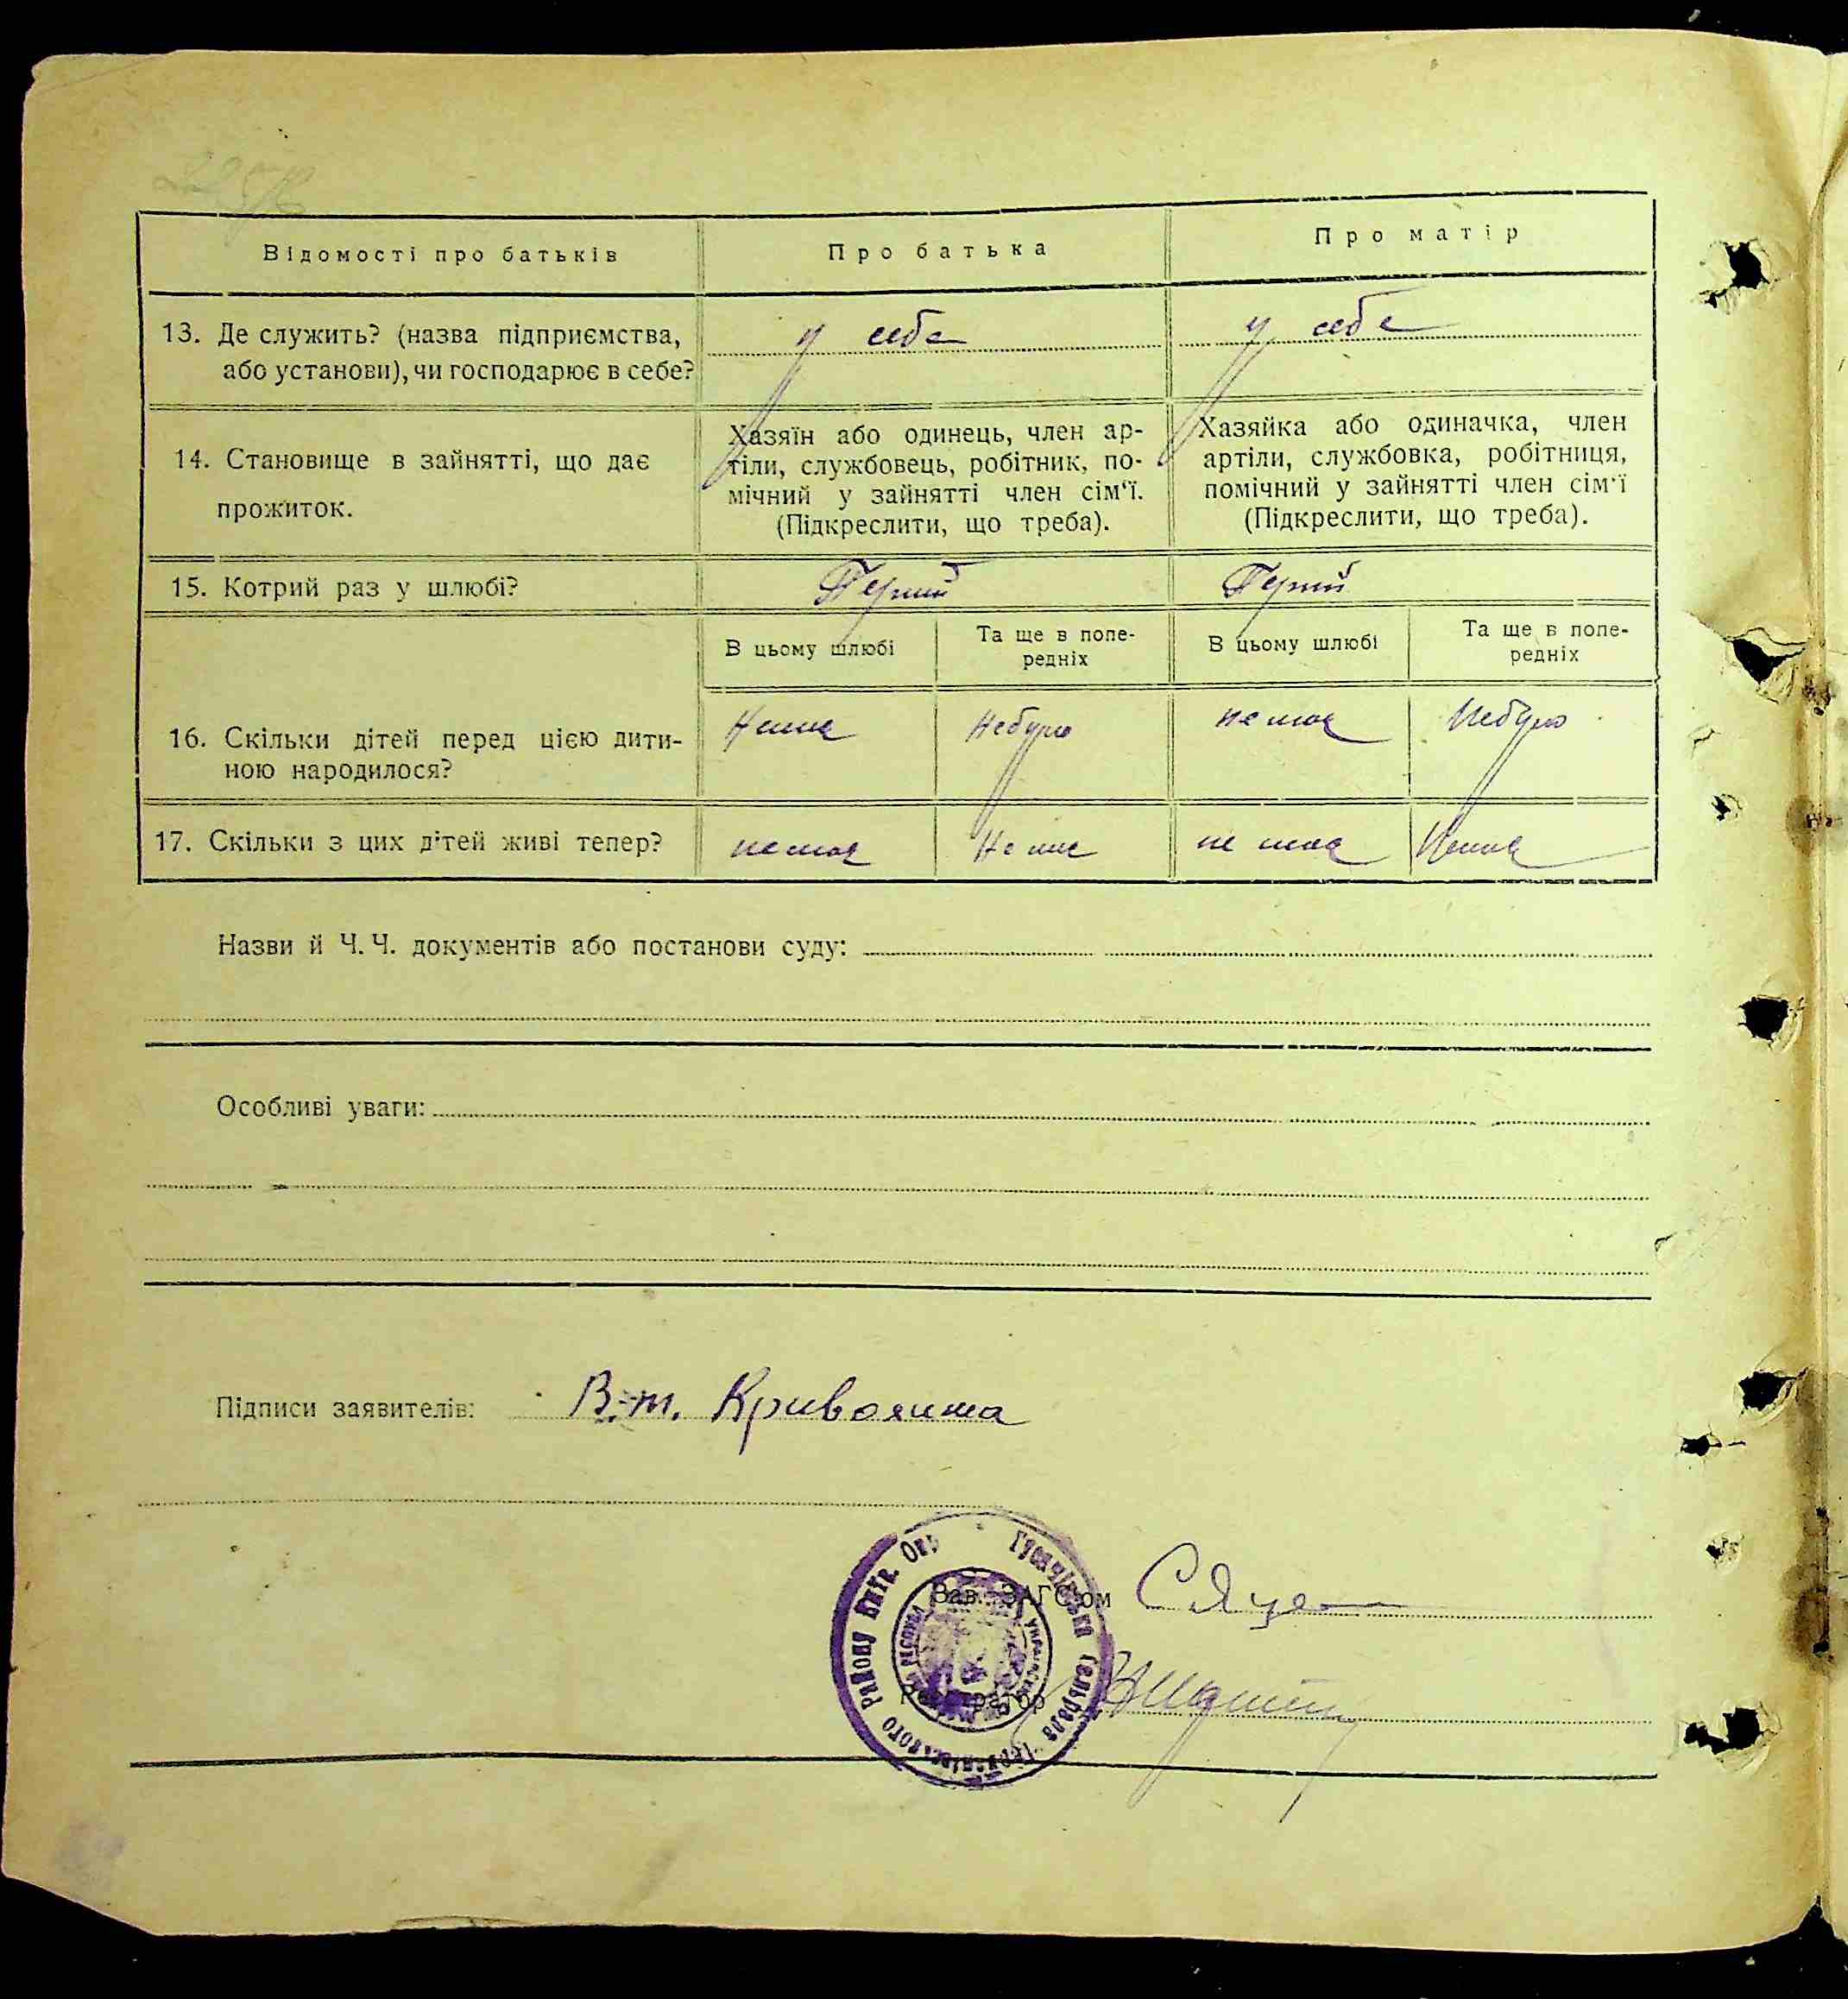 Відомості про батьків
Про батька
Про матір
13. Де служить? (назва підприємства,
або установи), чи господарює в себе?
у себе
у себе
14. Становище в зайнятті, що дає
прожиток.
Хазяїн або одинець, член ар-
тіли, службовець, робітник, по-
мічний у зайнятті член сім'ї.
(Підкреслити, що треба).
Хазяйка або одиначка, член
артіли, службовка, робітниця,
помічний у зайнятті член сім'ї
(Підкреслити, що треба).
15. Котрий раз у шлюбі?
Перший
Перший
В цьому шлюбі
Та ще в попе-
редніх
В цьому шлюбі
Та ще в попе-
редніх
16. Скільки дітей перед цією дити-
ною народилося?
Немає
Небуло
немає
Небуло
17. Скільки з цих дітей живі тепер?
немає
Немає
немає
Немає
Назви й Ч. Ч. документів або постанови суду:
Особливі уваги:
Підписи заявителів:
В. т. Кривошита
Зав. ЗАГС'ом
Регістратор
Сельрада
Району Вик. Окр